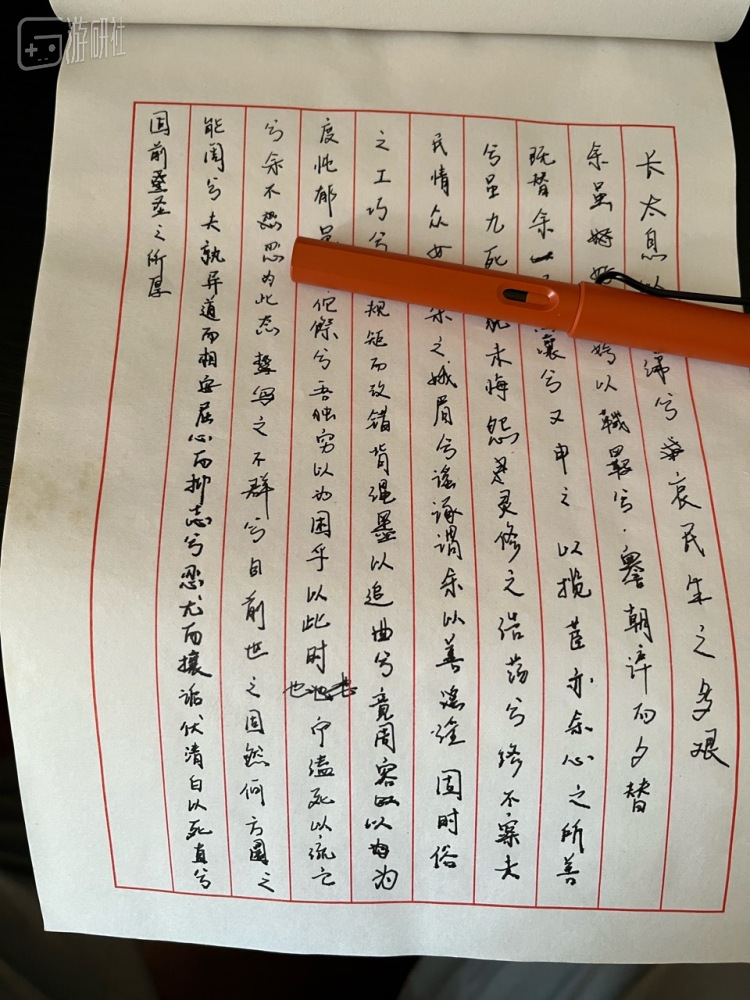 游研社
长太息以涕兮哀民生之多艰
余虽好以鞿羁兮謇朝谇而夕替
既替余纕兮又申之以揽茝亦余心之所善
兮虽九死未悔怨灵修之浩荡兮终不察夫
民情众女余之娥眉兮谣诼谓余以善淫固时俗
之工巧兮规矩而改错背绳墨以追曲兮竟周容以为
度忳郁侘傺兮吾独穷以为困乎以此时也宁溘死以流亡
兮余不忍为此态鸷鸟之不群兮自前世之固然何方圜之
能周兮夫孰异道而相安屈心而抑志兮忍尤而攘诟伏清白以死直兮
固前圣之所厚